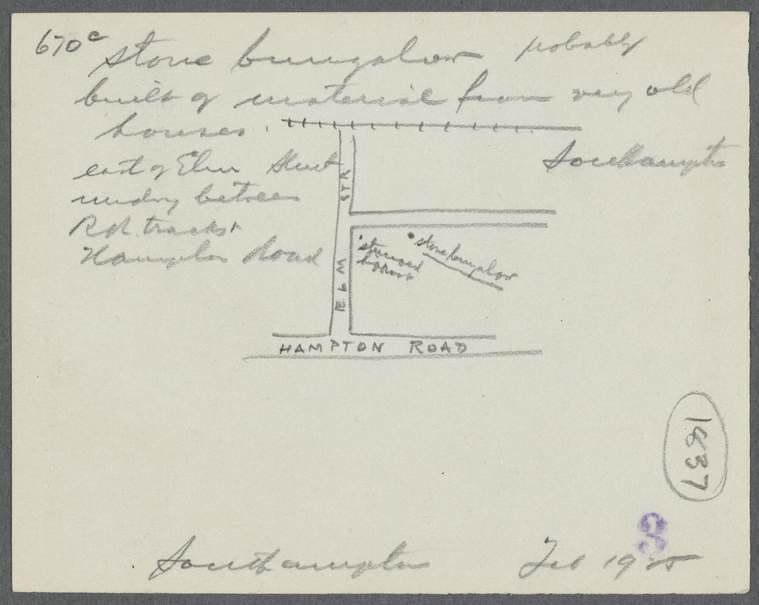 670c stone bungalow probably
built of material from very old
houses.
east of Elm Street
midway between
R.R. tracks &
Hampton Road
Southampton
ELM STR
stuccoed
house
stone bungalow
HAMPTON ROAD
1837
3
Southampton Feb 1925